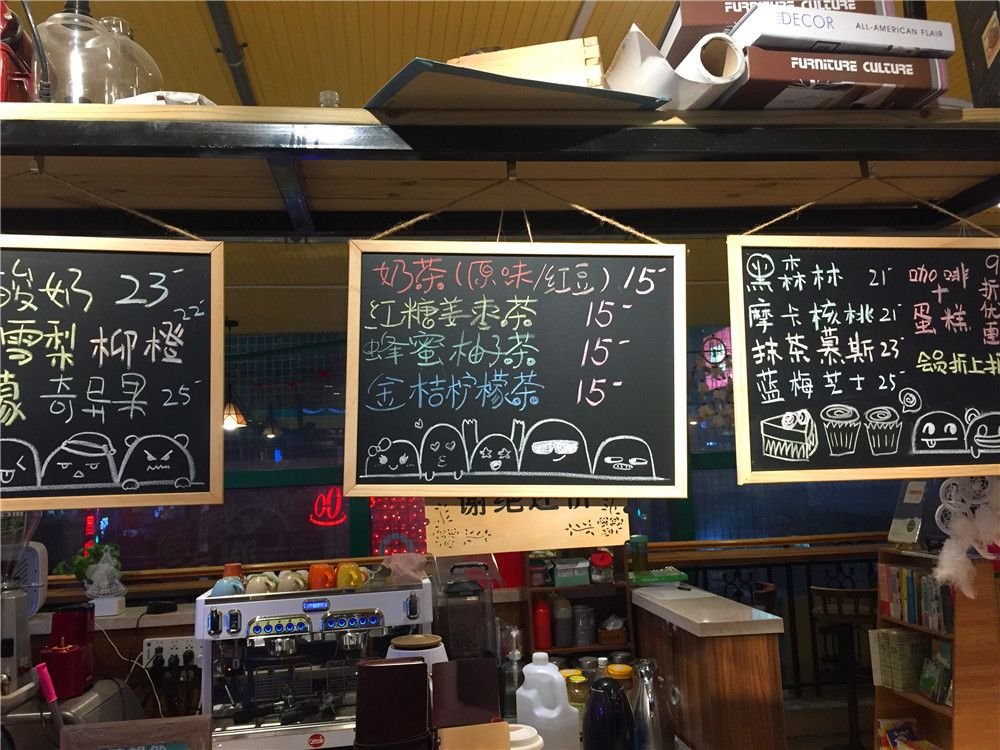 FURNITURE CULTURE
DECOR ALL-AMERICAN FLAIR
FURNITURE CULTURE
酸奶 23-
雪梨 柳橙 22-
檬 奇异果 25-
奶茶(原味/红豆) 15-
红糖姜枣茶 15-
蜂蜜柚子茶 15-
金桔柠檬茶 15-
黑森林 21-
摩卡核桃 21-
抹茶慕斯 23-
蓝莓芝士 25-
咖啡
+
蛋糕
9
折
优
惠
会员折上折
谢绝还价